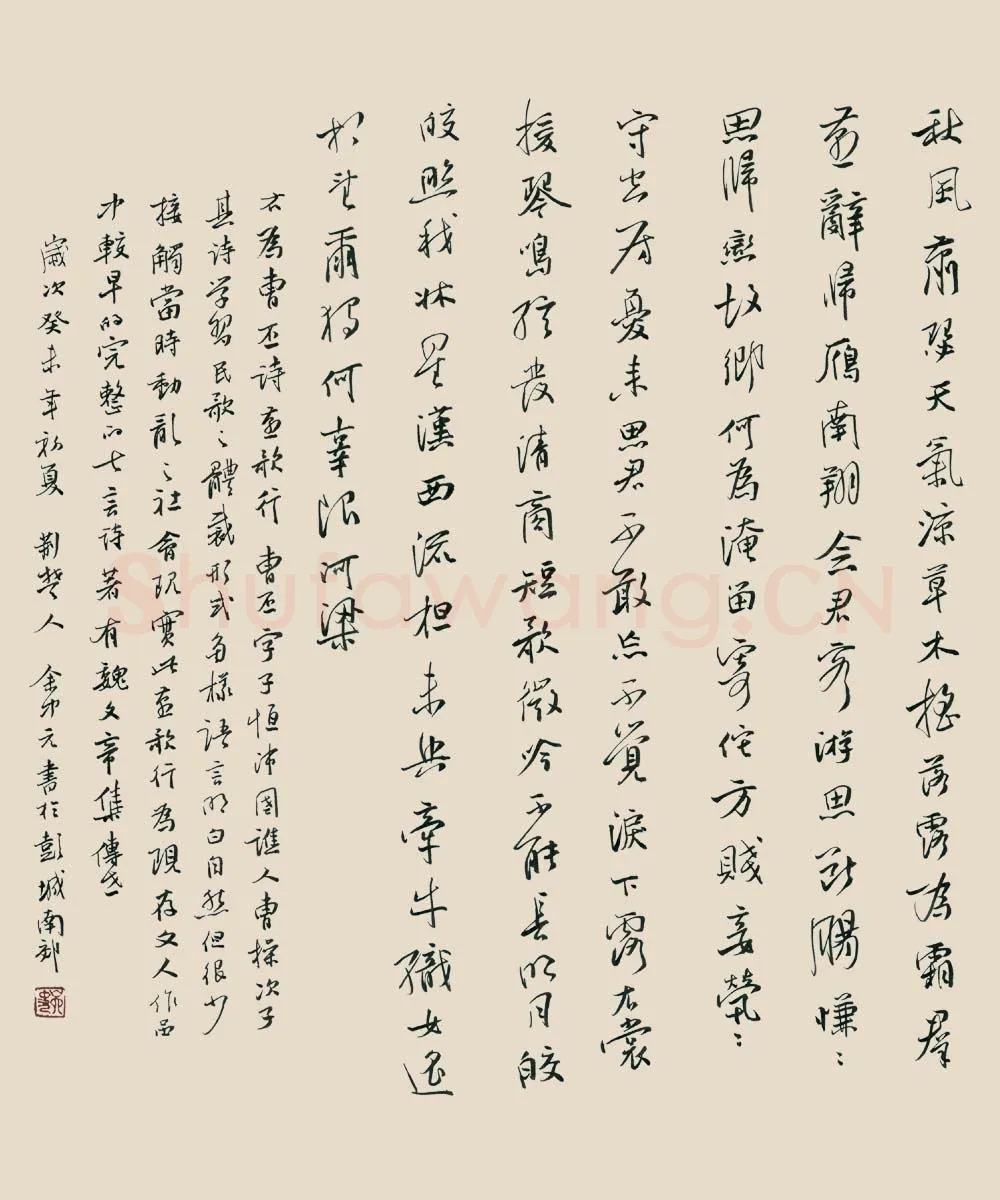 秋風蕭瑟天氣涼草木搖落露為霜群
燕辭歸雁南翔念君客游思斷腸慊〻
思歸戀故鄉何為淹留寄佗方賤妾煢〻
守空房憂來思君不敢忘不覺淚下露衣裳
援琴鳴弦發清商短歌微吟不能長明月皎
皎照我牀星漢西流夜未央牽牛織女遙
相望爾獨何辜限河梁
右為曹丕詩燕歌行 曹丕字子恒沛國譙人曹操次子
其詩学習民歌〻體裁形式多樣語言明白自然但很少
接觸當時動亂〻社會現實此燕歌行為現存文人作品
中較早的完整的七言詩著有魏文帝集傳世
歲次癸未年初夏 荆楚人 余中元書於彭城南郊
Shufawang.CN